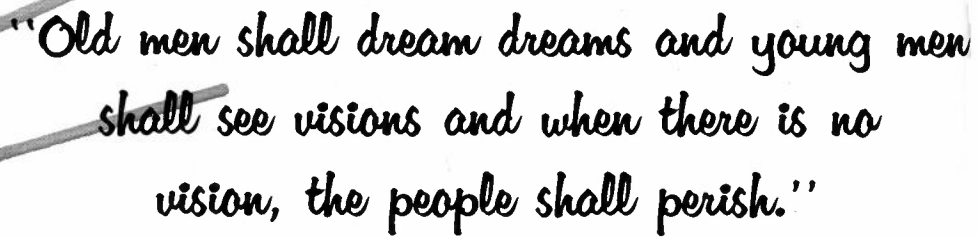 "Old men shall dream dreams and young men
shall see visions and when there is no
vision, the people shall perish."